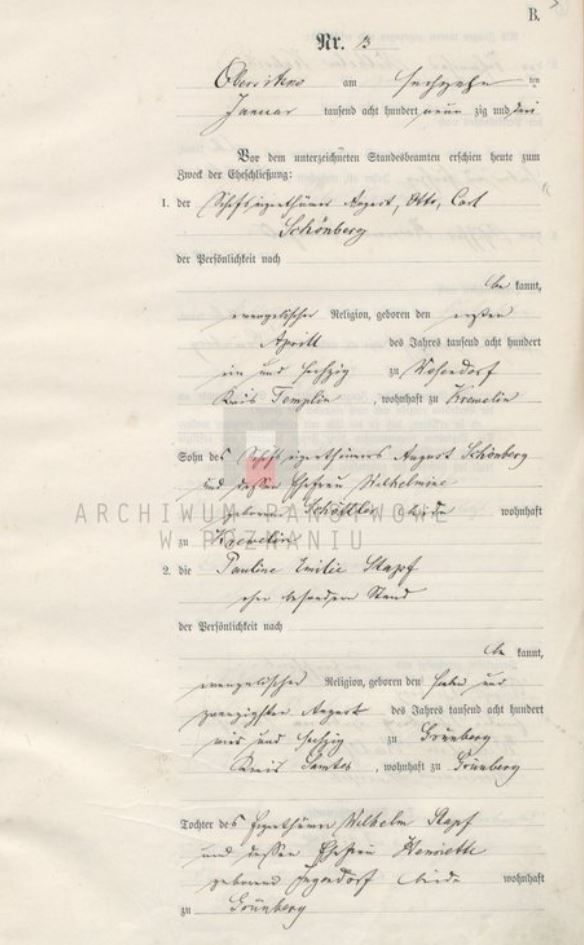 B.
Nr. 13
Obersitzko am sechszehn ten
Januar tausend acht hundert neun zig und drei
Vor dem unterzeichneten Standesbeamten erschien heute zum
Zweck der Eheschließung:
1. der Schiffseigenthümer August, Otto, Carl
Schönberg
der Persönlichkeit nach
be kannt,
evangelischer Religion, geboren den ersten
Aprill des Jahres tausend acht hundert
ein und sechzig zu
Kreis Templin, wohnhaft zu Krewelin
Sohn des Schiffseigenthümers August Schönberg
und dessen Ehefrau Wilhelmine
geborenen beide wohnhaft
zu Krewelin
ARCHIWUM PAŃSTWOWE
W POZNANIU
2. die Pauline Emilie Stapf
ohne besondern Stand
der Persönlichkeit nach
be kannt,
evangelischer Religion, geboren den sieben und
zwanzigsten August des Jahres tausend acht hundert
vier und sechzig zu Grünberg
Kreis Samter, wohnhaft zu Grünberg
Tochter des Eigenthümer Wilhelm Stapf
und dessen Ehefrau Henriette
geborene beide wohnhaft
zu Grünberg